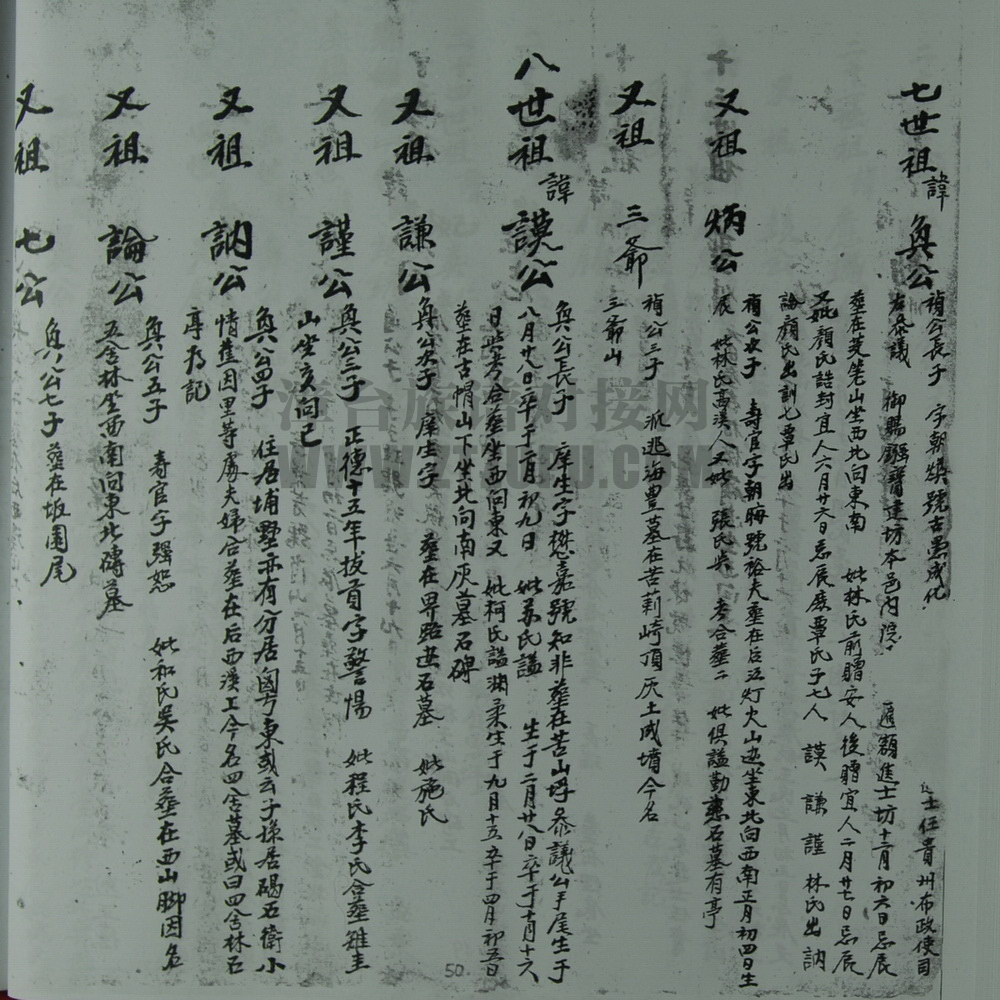 七世祖諱奐公
禎公長子 字朝煥號古愚成化 進士任貴州布政使司
左參議 御賜 建坊本邑內 匾額進士坊十二月初六日忌辰
葬在芝筦山坐西北向東南 妣林氏前贈安人後贈宜人二月廿七日忌辰
又妣顏氏誥封宜人六月廿六日忌辰庶覃氏子七人 謨 謙 謹 林氏出 訥
論顏氏出訓七覃氏出
又祖 炳公
禎公次子 壽官字朝晦號裕夫葬在后江灯火山 坐東北向西南正月初四日生
辰 妣林氏高溪人又妣 張氏 考合葬二 妣俱謚勤惠石墓有亭
又祖 三爺
禎公三子 派逃海豊墓在苦莉崎頂灰土成墳今名
三爺山
八世祖諱謨公
奐公長子 庠生字懋嘉號知非葬在苦山 參議公手尾生于
八月廿八日卒于二月初九日 妣苏氏謚 生于二月廿八日卒于十月十六
日 考合葬坐西向東又 妣柯氏謚淵柔生于九月十五卒于四月初五日
葬在古帽山下坐北向南灰墓石碑
又祖 謙公
奐公次子 庠生字 葬在界路 石墓 妣施氏
又祖 謹公
奐公三子 正德十五年拔首字警惕 妣程氏李氏合葬雖圭
山坐亥向巳
又祖 訥公
奐公四子 住居埔墅亦有分居粵東或云子孫居碣石衛小
情蕉因里等處夫婦合葬在后西溪工今名四舍墓或曰四舍林石
亭为記
又祖 論公
奐公五子 壽官字强恕 妣和氏吳氏合葬在西山脚因名
五舍林坐西南向東北磚墓
又祖 七公
奐公七子葬在坂園尾
50
WWW.ZZJUPU.COM